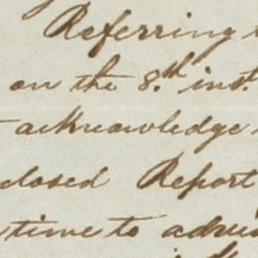 Referring
on the 8.th inst.
acknowledge
closed Report
time to